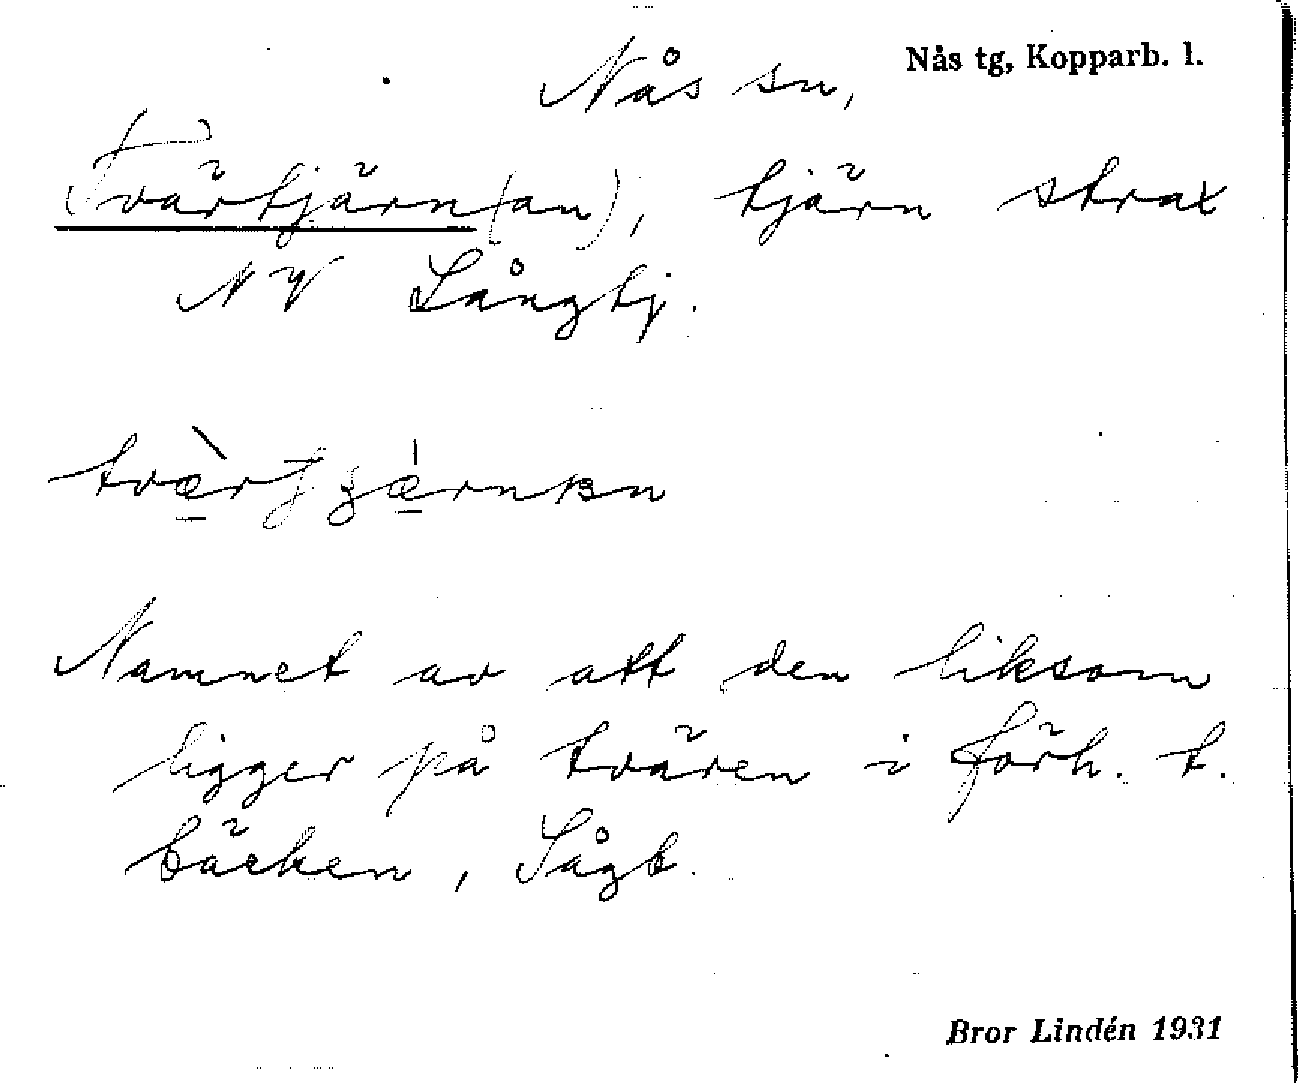 Nås tg, Kopparb. l.
Nås sn,
Tvärtjärn(an), tjärn strax
NV Långtj.
Namnet av att den liksom
ligger på tvären i förh. t.
bäcken, Sågb.
Bror Lindén 1931